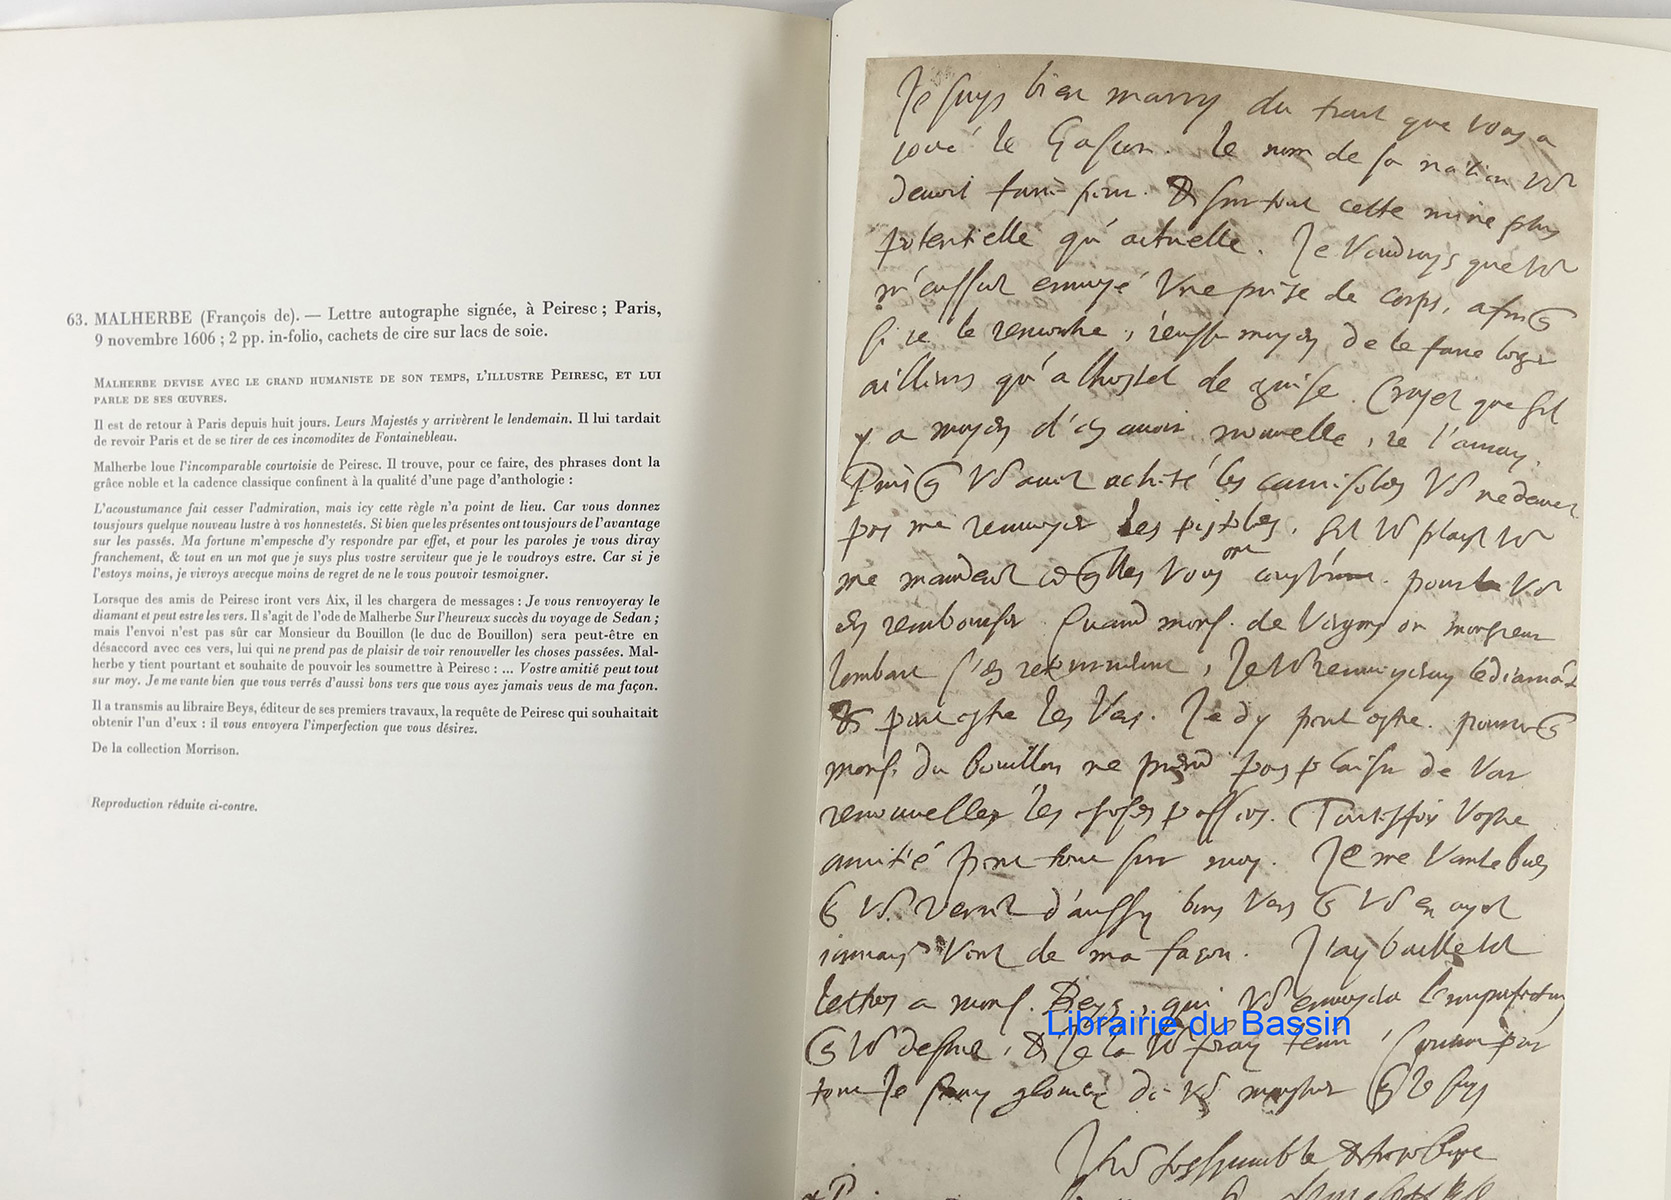 63. MALHERBE (François de). — Lettre autographe signée, à Peiresc ; Paris,
9 novembre 1606 ; 2 pp. in-folio, cachets de cire sur lacs de soie.
MALHERBE DEVISE AVEC LE GRAND HUMANISTE DE SON TEMPS, L'ILLUSTRE PEIRESC, ET LUI
PARLE DE SES ŒUVRES.
Il est de retour à Paris depuis huit jours. Leurs Majestés y arrivèrent le lendemain. Il lui tardait
de revoir Paris et de se tirer de ces incomodites de Fontainebleau.
Malherbe loue l'incomparable courtoisie de Peiresc. Il trouve, pour ce faire, des phrases dont la
grâce noble et la cadence classique confinent à la qualité d'une page d'anthologie :
L'acoustumance fait cesser l'admiration, mais icy cette règle n'a point de lieu. Car vous donnez
tousjours quelque nouveau lustre à vos honnestetés. Si bien que les présentes ont tousjours de l'avantage
sur les passés. Ma fortune m'empesche d'y respondre par effet, et pour les paroles je vous diray
franchement, & tout en un mot que je suys plus vostre serviteur que je le voudroys estre. Car si je
l'estoys moins, je vivroys avecque moins de regret de ne le vous pouvoir tesmoigner.
Lorsque des amis de Peiresc iront vers Aix, il les chargera de messages : Je vous renvoyeray le
diamant et peut estre les vers. Il s'agit de l'ode de Malherbe Sur l'heureux succès du voyage de Sedan ;
mais l'envoi n'est pas sûr car Monsieur du Bouillon (le duc de Bouillon) sera peut-être en
désaccord avec ces vers, lui qui ne prend pas de plaisir de voir renouveller les choses passées. Mal-
herbe y tient pourtant et souhaite de pouvoir les soumettre à Peiresc : ... Vostre amitié peut tout
sur moy. Je me vante bien que vous verrés d'aussi bons vers que vous ayez jamais veus de ma façon.
Il a transmis au libraire Beys, éditeur de ses premiers travaux, la requête de Peiresc qui souhaitait
obtenir l'un d'eux : il vous envoyera l'imperfection que vous désirez.
De la collection Morrison.
Reproduction réduite ci-contre.
Je suys bien marry du trait que vous a
joué le Gascon. le nom de sa nation
devoit faire peur. & sur tout cette mine plus
potentielle qu'actuelle. Je voudroys que
m'eussiez envoyé Une prise de corps, afin
si je le rencontre, j'eusse moyen de le faire loger
ailleurs qu'a lhostel de guise. Croyez que sil
y a moyen d'en avoir nouvelle, je l'auray.
avez acheté les camisoles ne devez
pas me renvoyer les pistoles. sil plaist
me mandez vous ont pour
en rembourser. Quand mons. de ou monsieur
lombart s'en Je renvoyeray le diamant
& peut estre les Vers. Je dy peut estre.
mons. du Bouillon ne prend pas plaisir de Voir
renouveller les choses passees. Toutesfois Vostre
amitié peut tout sur moy. Je me Vante bien
verrez d'aussy bons Vers en ayez
jamais Veus de ma façon. J'ay baillé
lettres a mons. Beys, qui envoyera l'imperfection
desirez, & tenir
tout je glorieux de monstrer suys
humble
Librairie du Bassin